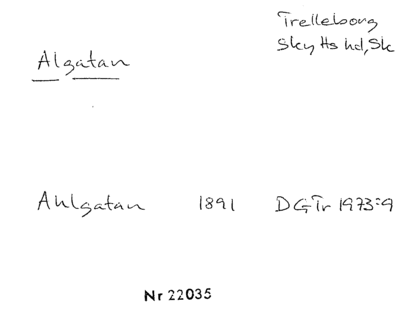 Trelleborg
Sky Hs hd, Sk
Algatan
Ahlgatan 1891 DGTr 1973:9
Nr 22035